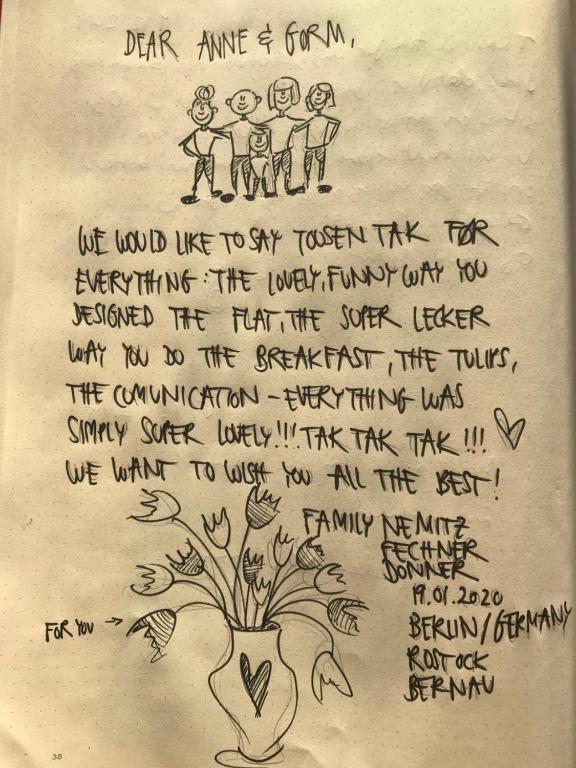 DEAR ANNE & GORM,
WE WOULD LIKE TO SAY TOUSEN TAK FØR
EVERYTHING: THE LOVELY, FUNNY WAY YOU
DESIGNED THE FLAT, THE SUPER LECKER
WAY YOU DO THE BREAKFAST, THE TULIPS,
THE COMUNICATION – EVERYTHING WAS
SIMPLY SUPER LOVELY!!! TAK TAK TAK!!!
WE WANT TO WISH YOU ALL THE BEST!
FAMILY NEMITZ
FECHNER
DONNER
19.01.2020
FOR YOU →
BERLIN/GERMANY
ROSTOCK
BERNAU
38